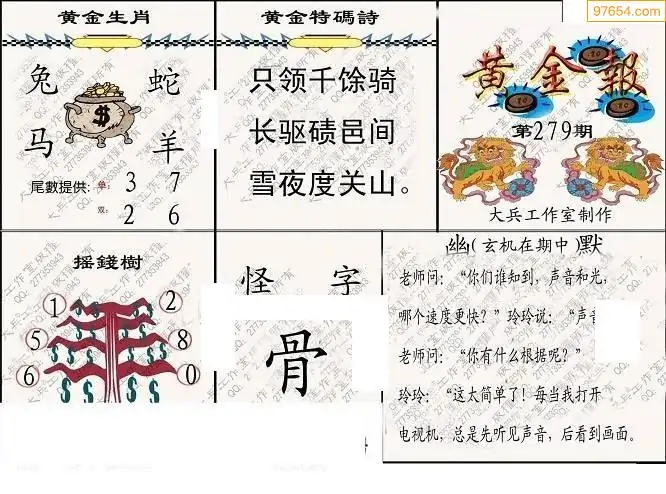 97654.com
黄金生肖
兔 蛇
马 羊
尾數提供: 单: 3 7
双: 2 6
黄金特碼詩
只领千馀骑
长驱碛邑间
雪夜度关山。
黄金報
第279期
大兵工作室制作
摇錢樹
1 2
5 8
6 0
怪 字
骨
幽(玄机在期中)默
老师问:“你们谁知到,声音和光,
哪个速度更快?”玲玲说:“声
老师问:“你有什么根据呢?”
玲玲:“这太简单了!每当我打开
电视机,总是先听见声音,后看到画面。